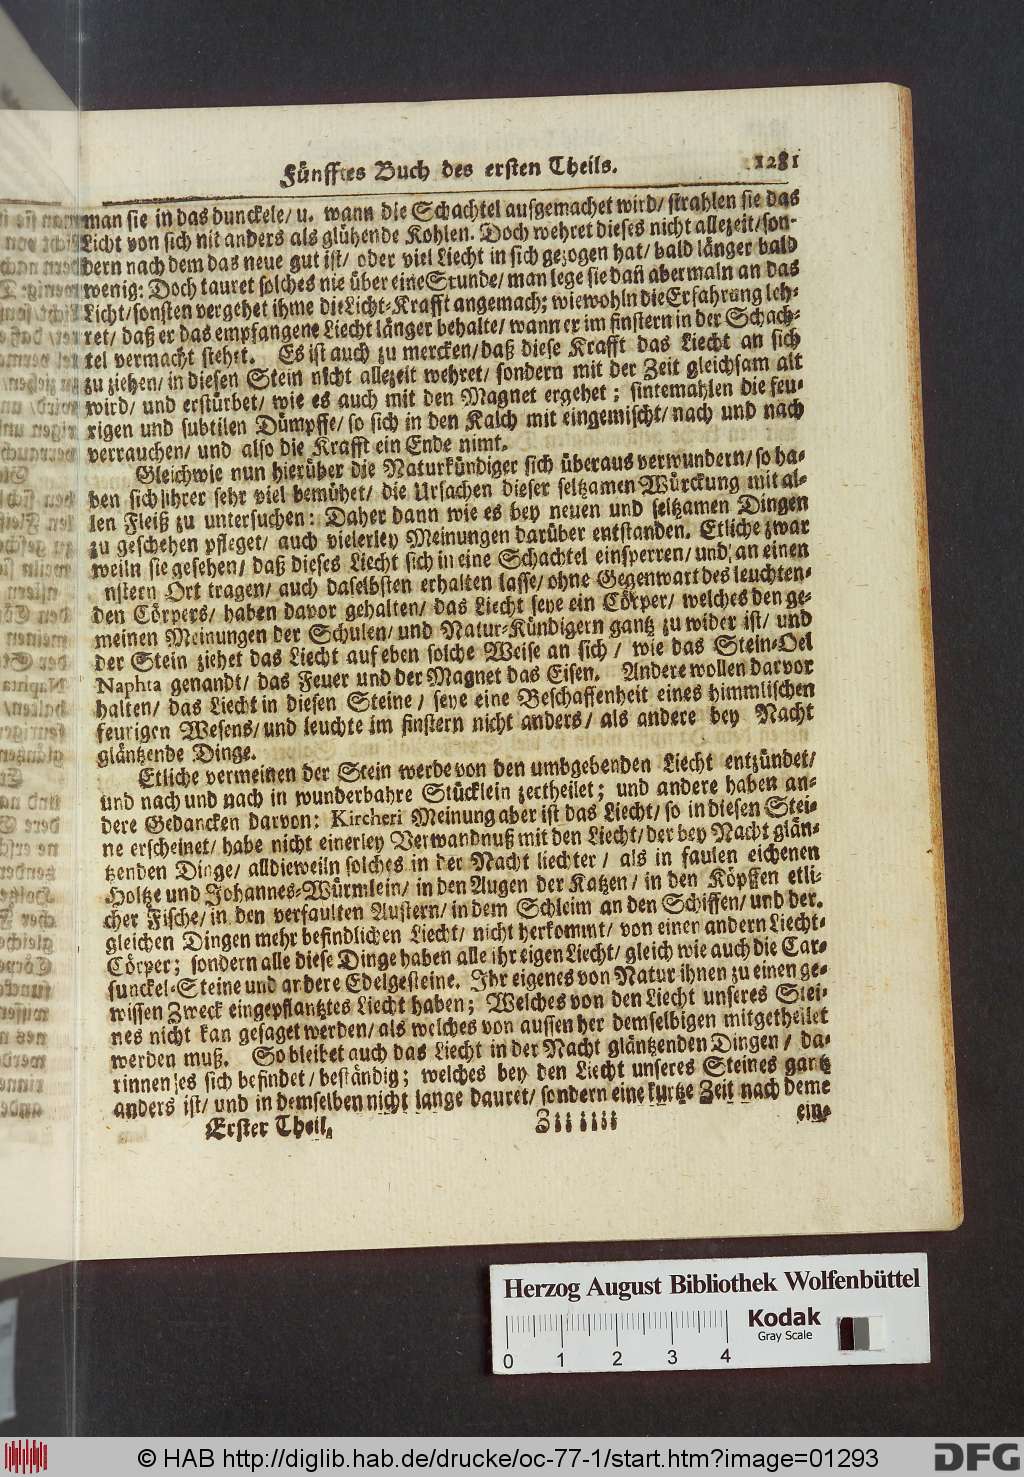 Fünfftes Buch des ersten Theils. 1281
man sie in das dunckele/ u. wann die Schachtel aufgemachet wird/ strahlen sie das
Licht von sich nit anders als glühende Kohlen. Doch wehret dieses nicht allezeit/ son-
dern nach dem das neue gut ist/ oder viel Liecht in sich gezogen hat/ bald länger bald
wenig: Doch tauret solches nie über eine Stunde/ man lege sie dañ abermaln an das
Licht/ sonsten vergehet ihme die Licht-Krafft angemach; wiewohln die Erfahrung leh-
ret/ daß er das empfangene Liecht länger behalte/ wann er im finstern in der Schach-
tel vermacht stehet. Es ist auch zu mercken/ daß diese Krafft das Liecht an sich
zu ziehen/ in diesen Stein nicht allezeit wehret/ sondern mit der Zeit gleichsam alt
wird/ und erstürbet/ wie es auch mit den Magnet ergehet; sintemahlen die feu-
rigen und subtilen Dümpffe/ so sich in den Kalch mit eingemischt/ nach und nach
verrauchen/ und also die Krafft ein Ende nimt.
Gleichwie nun hierüber die Naturkündiger sich überaus verwundern/ so ha-
ben sich ihrer sehr viel bemühet/ die Ursachen dieser seltzamen Würckung mit al-
len Fleiß zu untersuchen: Daher dann wie es bey neuen und seltzamen Dingen
zu geschehen pfleget/ auch vielerley Meinungen darüber entstanden. Etliche zwar
weiln sie gesehen/ daß dieses Liecht sich in eine Schachtel einsperren/ und an einen
nstern Ort tragen/ auch daselbsten erhalten lasse/ ohne Gegenwart des leuchten-
den Cörpers/ haben davor gehalten/ das Liecht seye ein Cörper/ welches den ge-
meinen Meinungen der Schulen/ und Natur-Kündigern gantz zu wider ist/ und
der Stein ziehet das Liecht auf eben solche Weise an sich/ wie das Stein-Oel
Naphta genandt/ das Feuer und der Magnet das Eisen. Andere wollen darvor
halten/ das Liecht in diesen Steine/ seye eine Beschaffenheit eines himmlischen
feurigen Wesens/ und leuchte im finstern nicht anders/ als andere bey Nacht
gläntzende Dinge.
Etliche vermeinen der Stein werde von den umbgebenden Liecht entzündet/
und nach und nach in wunderbahre Stücklein zertheilet; und andere haben an-
dere Gedancken darvon: Kircheri Meinung aber ist das Liecht/ so in diesen Stei-
ne erscheinet/ habe nicht einerley Verwandnuß mit den Liecht/ der bey Nacht glän-
tzenden Dinge/ alldieweiln solches in der Nacht liechter/ als in faulen eichenen
Holtze und Johannes-Würmlein/ in den Augen der Katzen/ in den Köpffen etli-
cher Fische/ in den verfaulten Austern/ in dem Schleim an den Schiffen/ und der-
gleichen Dingen mehr befindlichen Liecht/ nicht herkommt/ von einer andern Liecht-
Cörper; sondern alle diese Dinge haben alle ihr eigen Liecht/ gleich wie auch die Car-
sunckel-Steine und andere Edelgesteine. Ihr eigenes von Natur ihnen zu einen ge-
wissen Zweck eingepflantztes Liecht haben; Welches von den Liecht unseres Stei-
nes nicht kan gesaget werden/ als welches von aussen her demselbigen mitgetheilet
werden muß. So bleibet auch das Liecht in der Nacht gläntzenden Dingen/ da-
rinnen es sich befindet/ beständig; welches bey den Liecht unseres Steines gantz
anders ist/ und in demselben nicht lange dauret/ sondern eine kurtze Zeit nach deme
Erster Theil. Zii iiii ein-
Herzog August Bibliothek Wolfenbüttel
Kodak
Gray Scale
0 1 2 3 4
© HAB http://diglib.hab.de/drucke/oc-77-1/start.htm?image=01293
DFG